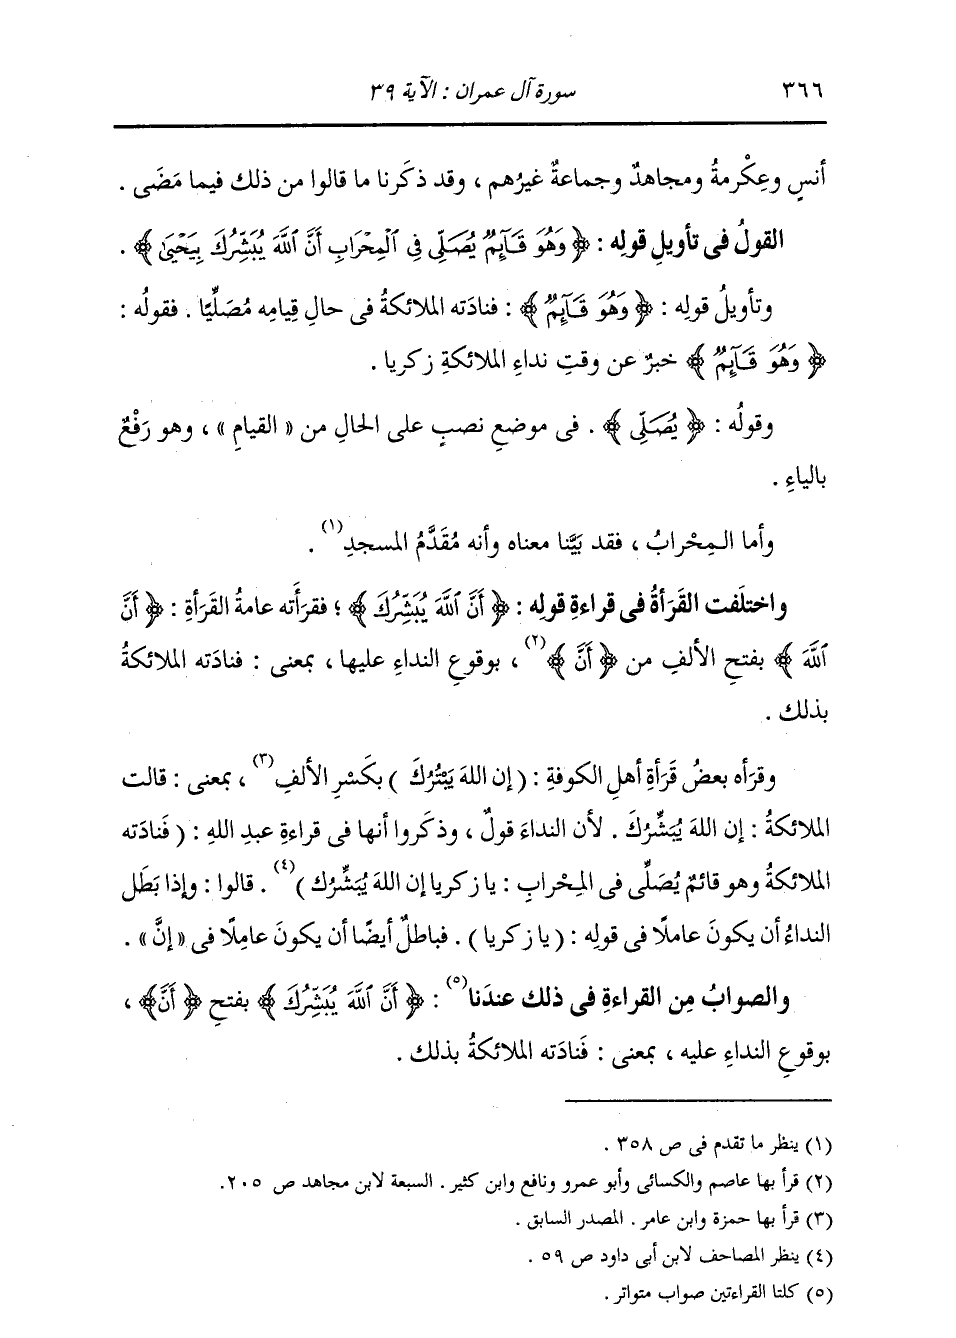 ٣٦٦ سورة آل عمران : الآية ٣٩
أنسٍ وعِكْرمةُ ومجاهدٌ وجماعةٌ غيرُهم ، وقد ذكَرنا ما قالوا من ذلك فيما مَضَى .
القولُ فى تأويلِ قولِه : ﴿ وَهُوَ قَآئِمٌ يُصَلِّى فِى ٱلْمِحْرَابِ أَنَّ ٱللَّهَ يُبَشِّرُكَ بِيَحْيَىٰ ﴾ .
وتأويلُ قولِه : ﴿ وَهُوَ قَآئِمٌ ﴾ : فنادَته الملائكةُ فى حالِ قِيامِه مُصَلِّيًا . فقولُه :
﴿ وَهُوَ قَآئِمٌ ﴾ خبرٌ عن وقتِ نداءِ الملائكةِ زكريا .
وقولُه : ﴿ يُصَلِّى ﴾ . فى موضعِ نصبٍ على الحالِ من « القيامِ » ، وهو رَفْعٌ
بالياءِ .
وأما المِحْرابُ ، فقد بَيَّنا معناه وأنه مُقَدَّمُ المسجدِ(١) .
واختلَفت القَرَأةُ فى قراءةِ قولِه : ﴿ أَنَّ ٱللَّهَ يُبَشِّرُكَ ﴾ ؛ فقرَأَته عامةُ القَرَأةِ : ﴿ أَنَّ
ٱللَّهَ ﴾ بفتحِ الألفِ من ﴿ أَنَّ ﴾(٢) ، بوقوعِ النداءِ عليها ، بمعنى : فنادَته الملائكةُ
بذلك .
وقرَأه بعضُ قَرَأةِ أهلِ الكوفةِ : ( إن اللهَ يَبْشُرُكَ ) بكَسْرِ الألفِ(٣) ، بمعنى : قالت
الملائكةُ : إن اللهَ يُبَشِّرُكَ . لأن النداءَ قولٌ ، وذكَروا أنها فى قراءةِ عبدِ اللهِ : ( فَنادَته
الملائكةُ وهو قائمٌ يُصَلِّى فى المِحْرابِ : يا زكريا إن اللهَ يُبَشِّرُك )(٤) . قالوا : وإذا بَطَل
النداءُ أن يكونَ عاملًا فى قولِه : ( يا زكريا ) . فباطلٌ أيضًا أن يكونَ عامِلًا فى « إنَّ » .
والصوابُ مِن القراءةِ فى ذلك عندَنا(٥) : ﴿ أَنَّ ٱللَّهَ يُبَشِّرُكَ ﴾ بفتحِ ﴿ أَنَّ ﴾ ،
بوقوعِ النداءِ عليه ، بمعنى : فَنادَته الملائكةُ بذلك .
(١) ينظر ما تقدم فى ص ٣٥٨ .
(٢) قرأ بها عاصم والكسائى وأبو عمرو ونافع وابن كثير . السبعة لابن مجاهد ص ٢٠٥ .
(٣) قرأ بها حمزة وابن عامر . المصدر السابق .
(٤) ينظر المصاحف لابن أبى داود ص ٥٩ .
(٥) كلتا القراءتين صواب متواتر .